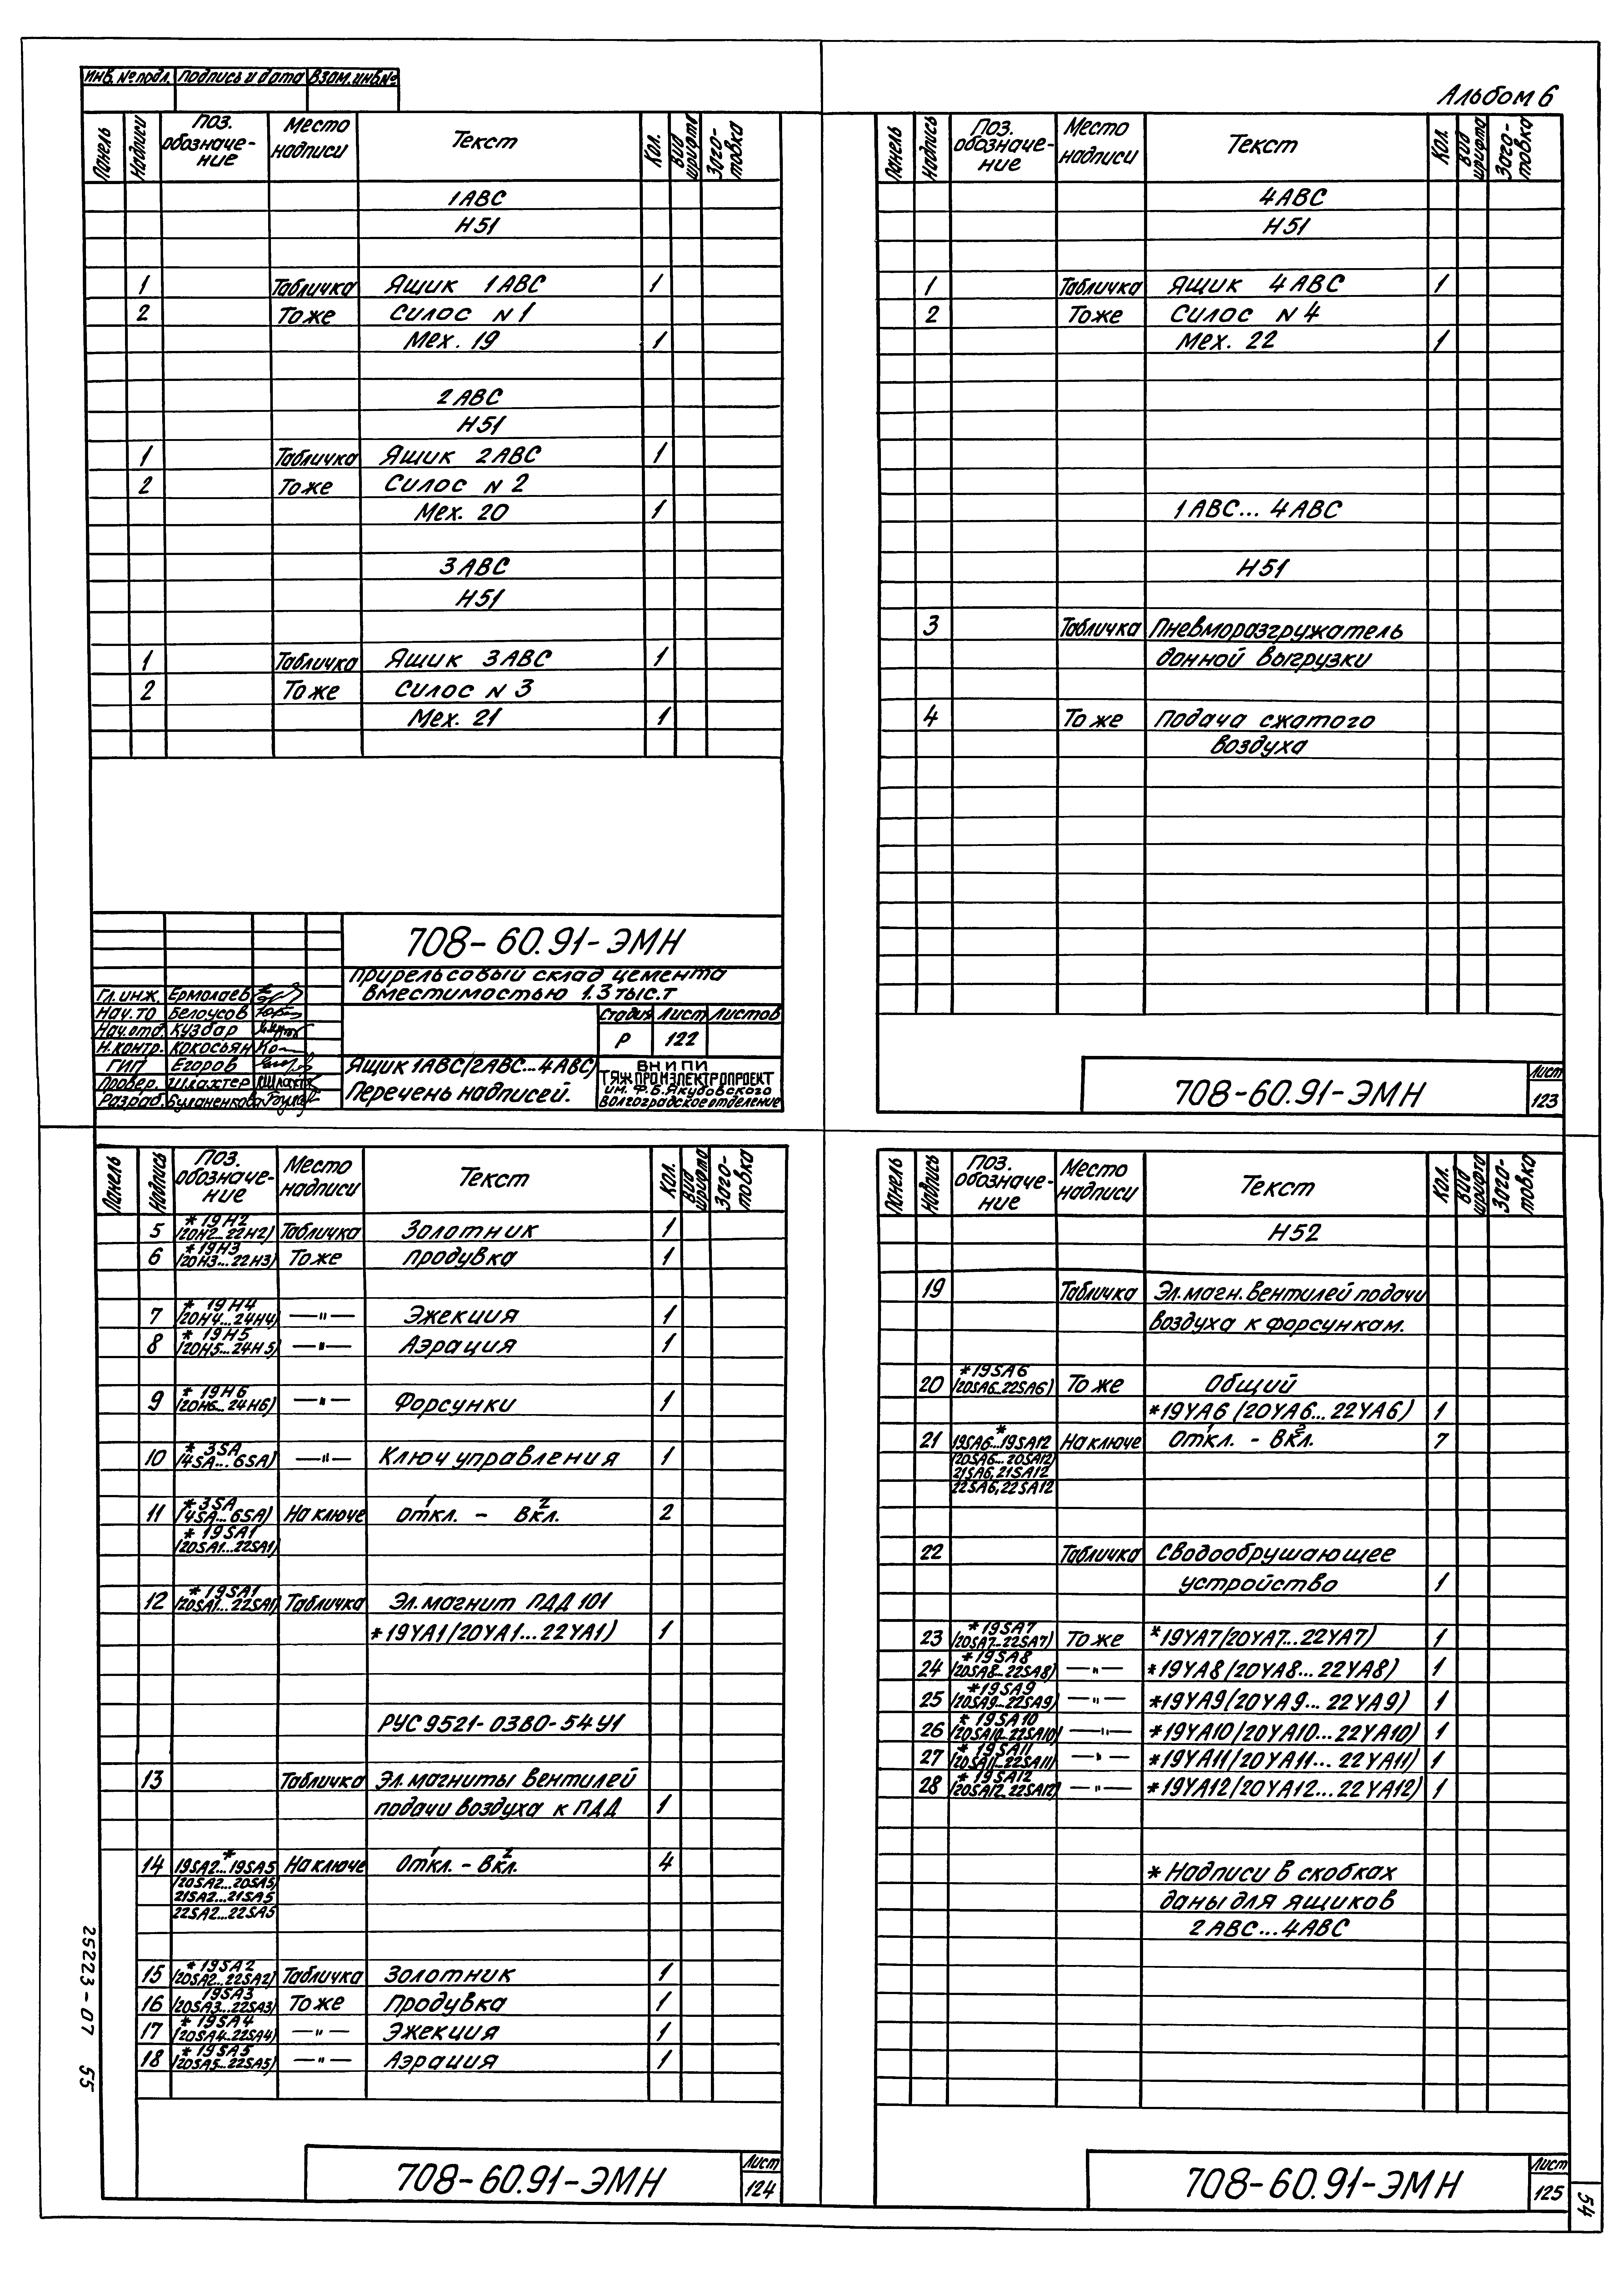 Альбом 6
Инв. № подл. Подпись и дата Взам. инв. №
Панель Надписи Поз. обозначе-ние Место надписи Текст Кол. Вид шрифта Заго-товка
1АВС
Н51
1 Табличка Ящик 1АВС 1
2 Тоже Силос N1
Мех. 19 1
2АВС
Н51
1 Табличка Ящик 2АВС 1
2 Тоже Силос N 2
Мех. 20 1
3АВС
Н51
1 Табличка Ящик 3АВС 1
2 Тоже Силос N 3
Мех. 21 1
708-60.91-ЭМН
Прирельсовый склад цемента
вместимостью 1.3 тыс.т
Гл. инж. Ермолаев
Нач. ТО Белоусов
Нач. отд. Кузбар
Н. контр. Кокосьян
ГИП Егоров
Провер. Шлахтер
Разраб. Буланенкова
Стадия Лист Листов
Р 122
Ящик 1АВС/2АВС...4АВС/
Перечень надписей.
ВНИПИ
ТЯЖПРОМЭЛЕКТРОПРОЕКТ
им. Ф.Б. Якубовского
Волгоградское отделение
Панель Надпись Поз. обозначе-ние Место надписи Текст Кол. Вид шрифта Заго-товка
4АВС
Н51
1 Табличка Ящик 4АВС 1
2 Тоже Силос N 4
Мех. 22 1
1АВС... 4АВС
Н51
3 Табличка Пневморазгружатель
донной выгрузки
4 Тоже Подача сжатого
воздуха
708-60.91-ЭМН
Лист
123
Панель Надпись Поз. обозначе-ние Место надписи Текст Кол. Вид шрифта Заго-товка
5 * 19Н2 Табличка Золотник 1
(20Н2...22Н2)
6 * 19Н3 Тоже продувка 1
(20Н3...22Н3)
7 * 19Н4 —"— Эжекция 1
(20Н4...24Н4)
8 * 19Н5 —"— Аэрация 1
(20Н5...24Н5)
9 * 19Н6 —"— Форсунки 1
(20Н6...24Н6)
10 * 3SA —"— Ключ управления 1
(4SA...6SA)
11 * 3SA На ключе 1 2
(4SA...6SA) Откл. - Вкл. 2
* 19SA1
(20SA1...22SA1)
12 * 19SA1 Табличка Эл.магнит ПДД 101
(20SA1...22SA1)
* 19YA1/20YA1...22YA1) 1
РУС 9521-03В0-54У1
13 Табличка Эл.магниты вентилей
подачи воздуха к ПДД 1
14 * На ключе 1 2
19SA2...19SA5 Откл. - Вкл. 4
(20SA2...20SA5)
21SA2...21SA5
22SA2...22SA5
15 * 19SA2 Табличка Золотник 1
(20SA2...22SA2)
16 19SA3 Тоже Продувка 1
(20SA3...22SA3)
17 * 19SA4 —"— Эжекция 1
(20SA4...22SA4)
18 * 19SA5 —"— Аэрация 1
(20SA5...22SA5)
25223-07 55
708-60.91-ЭМН
Лист
124
Панель Надпись Поз. обозначе-ние Место надписи Текст Кол. Вид шрифта Заго-товка
Н52
19 Табличка Эл.магн.вентилей подачи
воздуха к форсункам.
20 * 19SA6 Тоже Общий
(20SA6...22SA6)
* 19YA6 (20YA6...22YA6) 1
21 * На ключе 1 2
19SA6...19SA12 Откл. - Вкл. 7
(20SA6...20SA12)
21SA6, 21SA12
22SA6, 22SA12
22 Табличка Сводообрушающее
устройство 1
23 * 19SA7 Тоже * 19YA7/20YA7...22YA7) 1
(20SA7...22SA7)
24 * 19SA8 —"— * 19YA8/20YA8...22YA8) 1
(20SA8...22SA8)
25 * 19SA9 —"— * 19YA9/20YA9...22YA9) 1
(20SA9...22SA9)
26 * 19SA10 —"— * 19YA10/20YA10...22YA10) 1
(20SA10...22SA10)
27 * 19SA11 —"— * 19YA11/20YA11...22YA11) 1
(20SA11...22SA11)
28 * 19SA12 —"— * 19YA12/20YA12...22YA12) 1
(20SA12...22SA12)
* Надписи в скобках
даны для ящиков
2АВС...4АВС
708-60.91-ЭМН
Лист
125
54